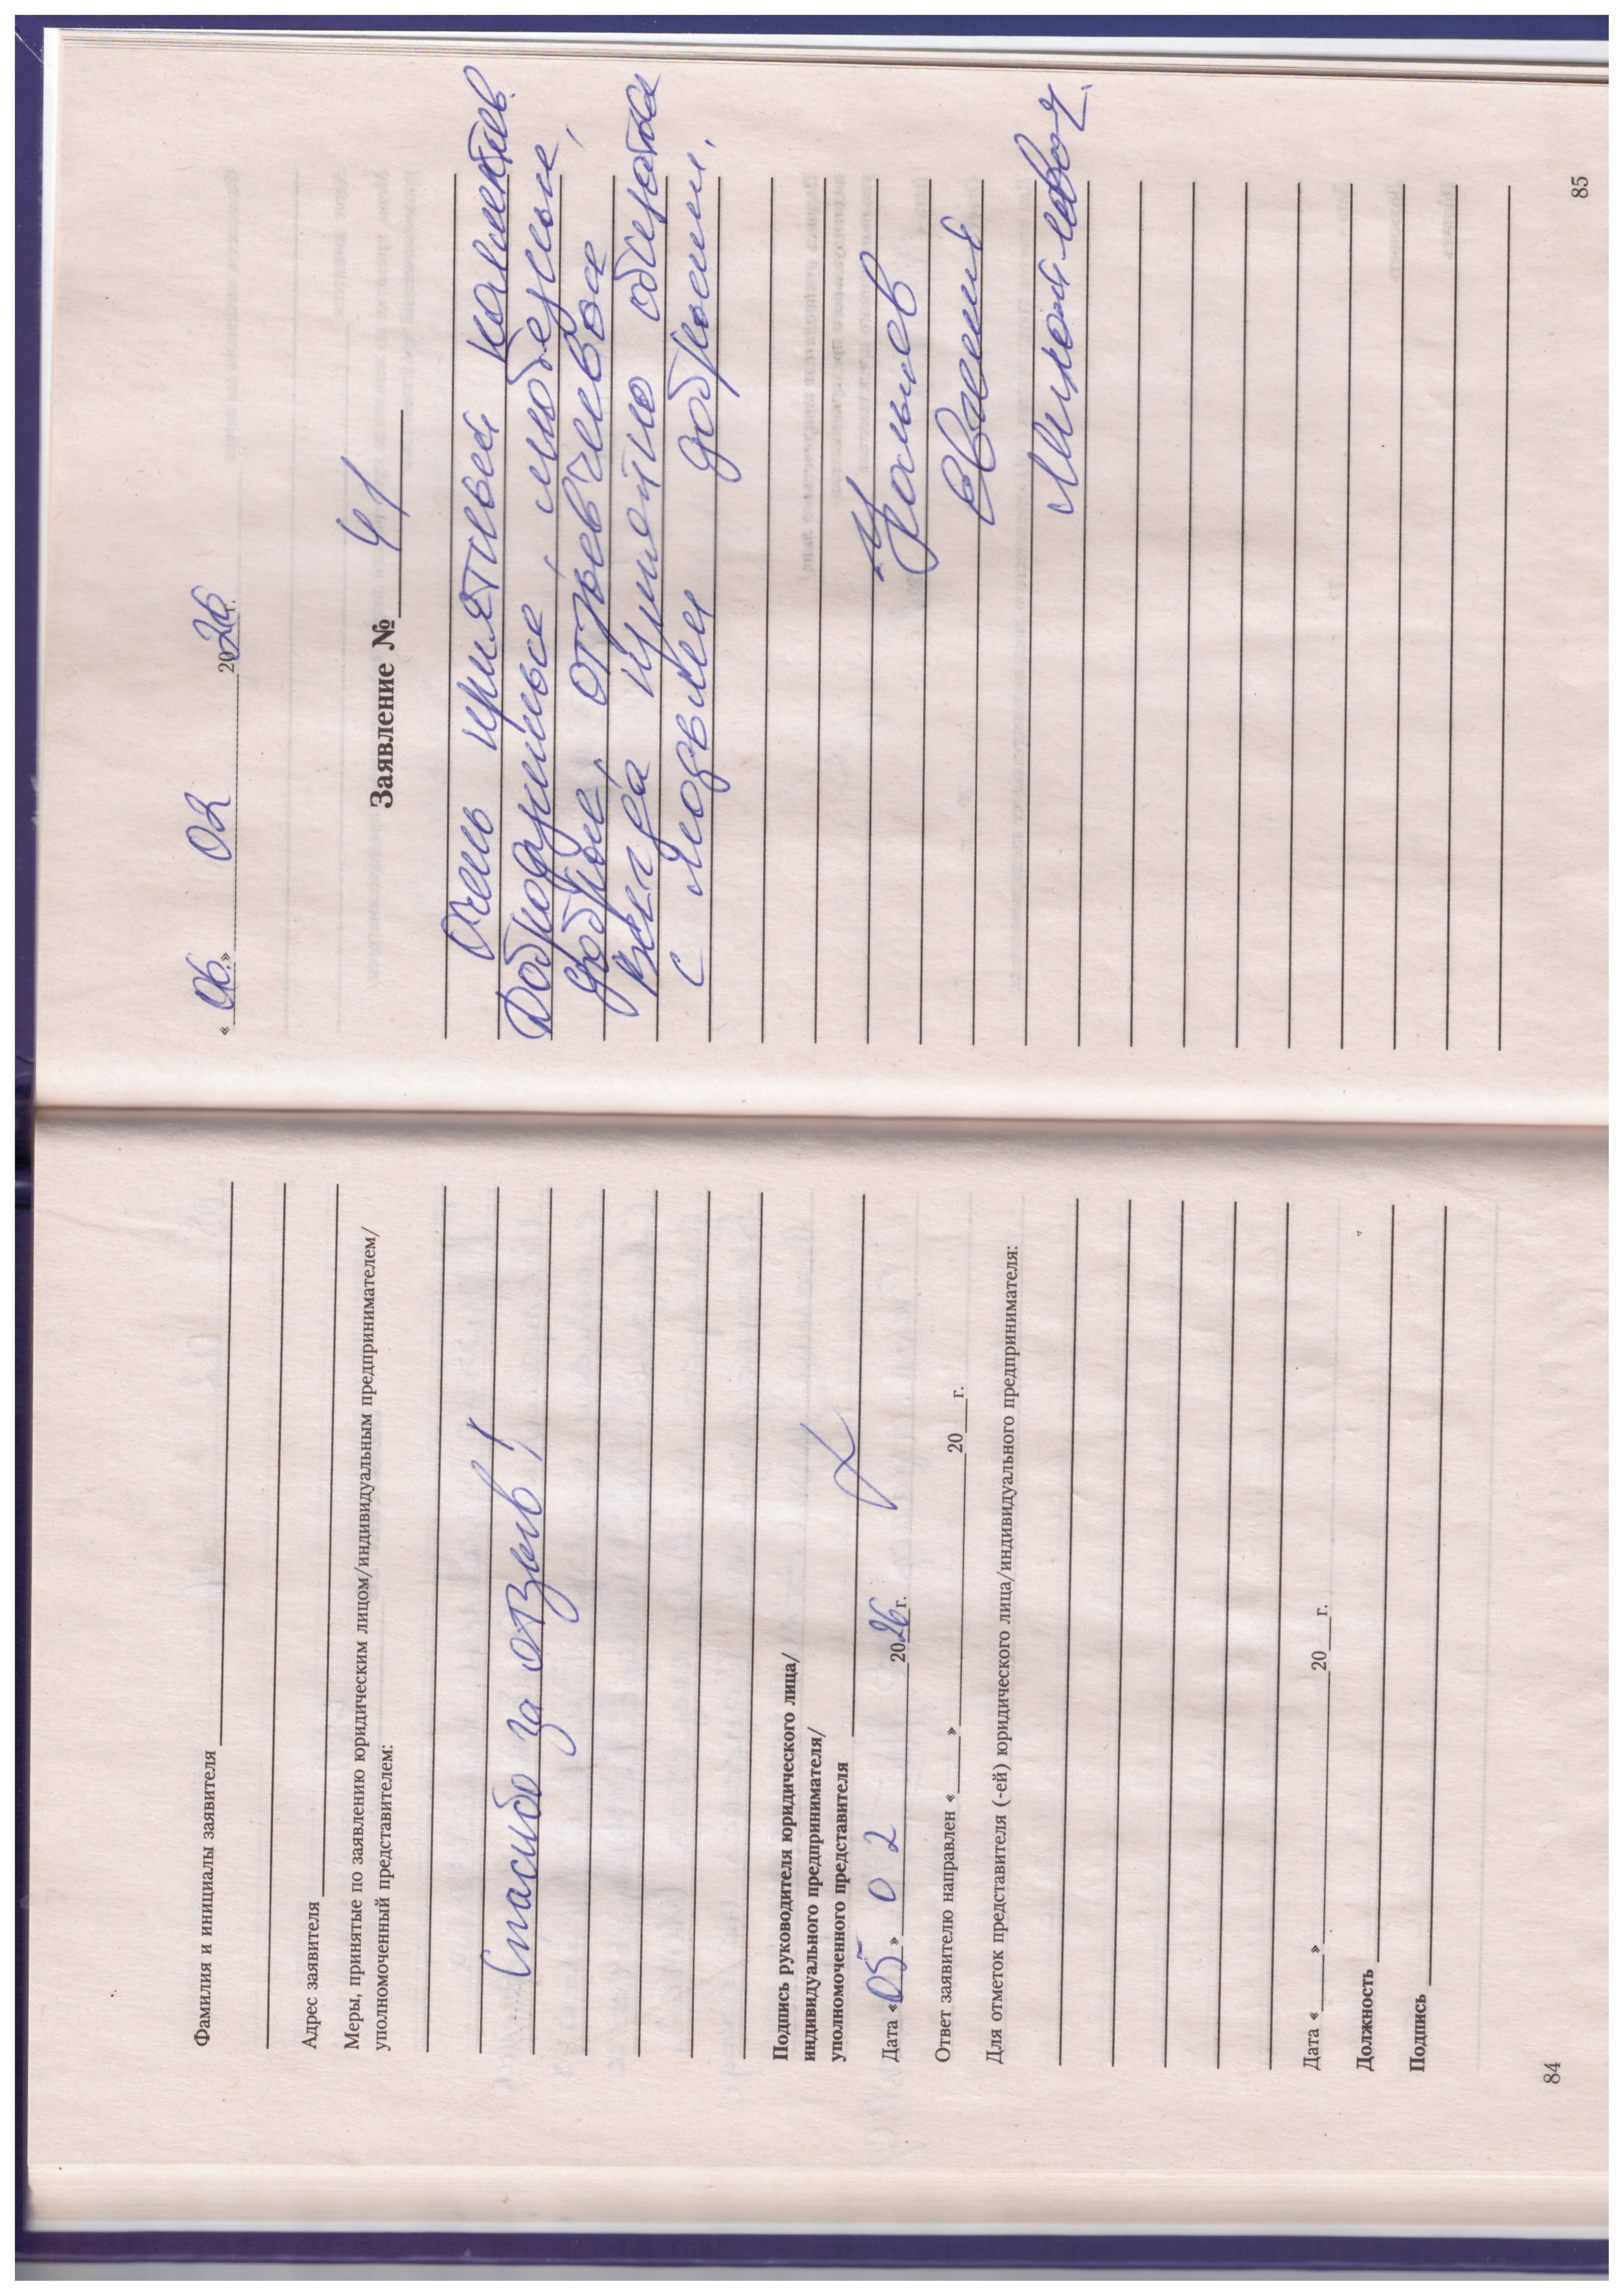 Фамилия и инициалы заявителя
Адрес заявителя
Меры, принятые по заявлению юридическим лицом/индивидуальным предпринимателем/
уполномоченный представителем:
Спасибо за отзыв!
Подпись руководителя юридического лица/
индивидуального предпринимателя/
уполномоченного представителя
Дата «05» 02 2026г.
Ответ заявителю направлен «____»____20___г.
Для отметок представителя (-ей) юридического лица/индивидуального предпринимателя:
Дата «____»____20___г.
Должность
Подпись
84
«06.» 02 2026г.
Заявление № 41
Очень приятный коллектив.
Доброжелательные, любезные,
добрые, отзывчивые
Всегда приятно общаться
с людьми добрыми.
Евгений
Михайлович.
85